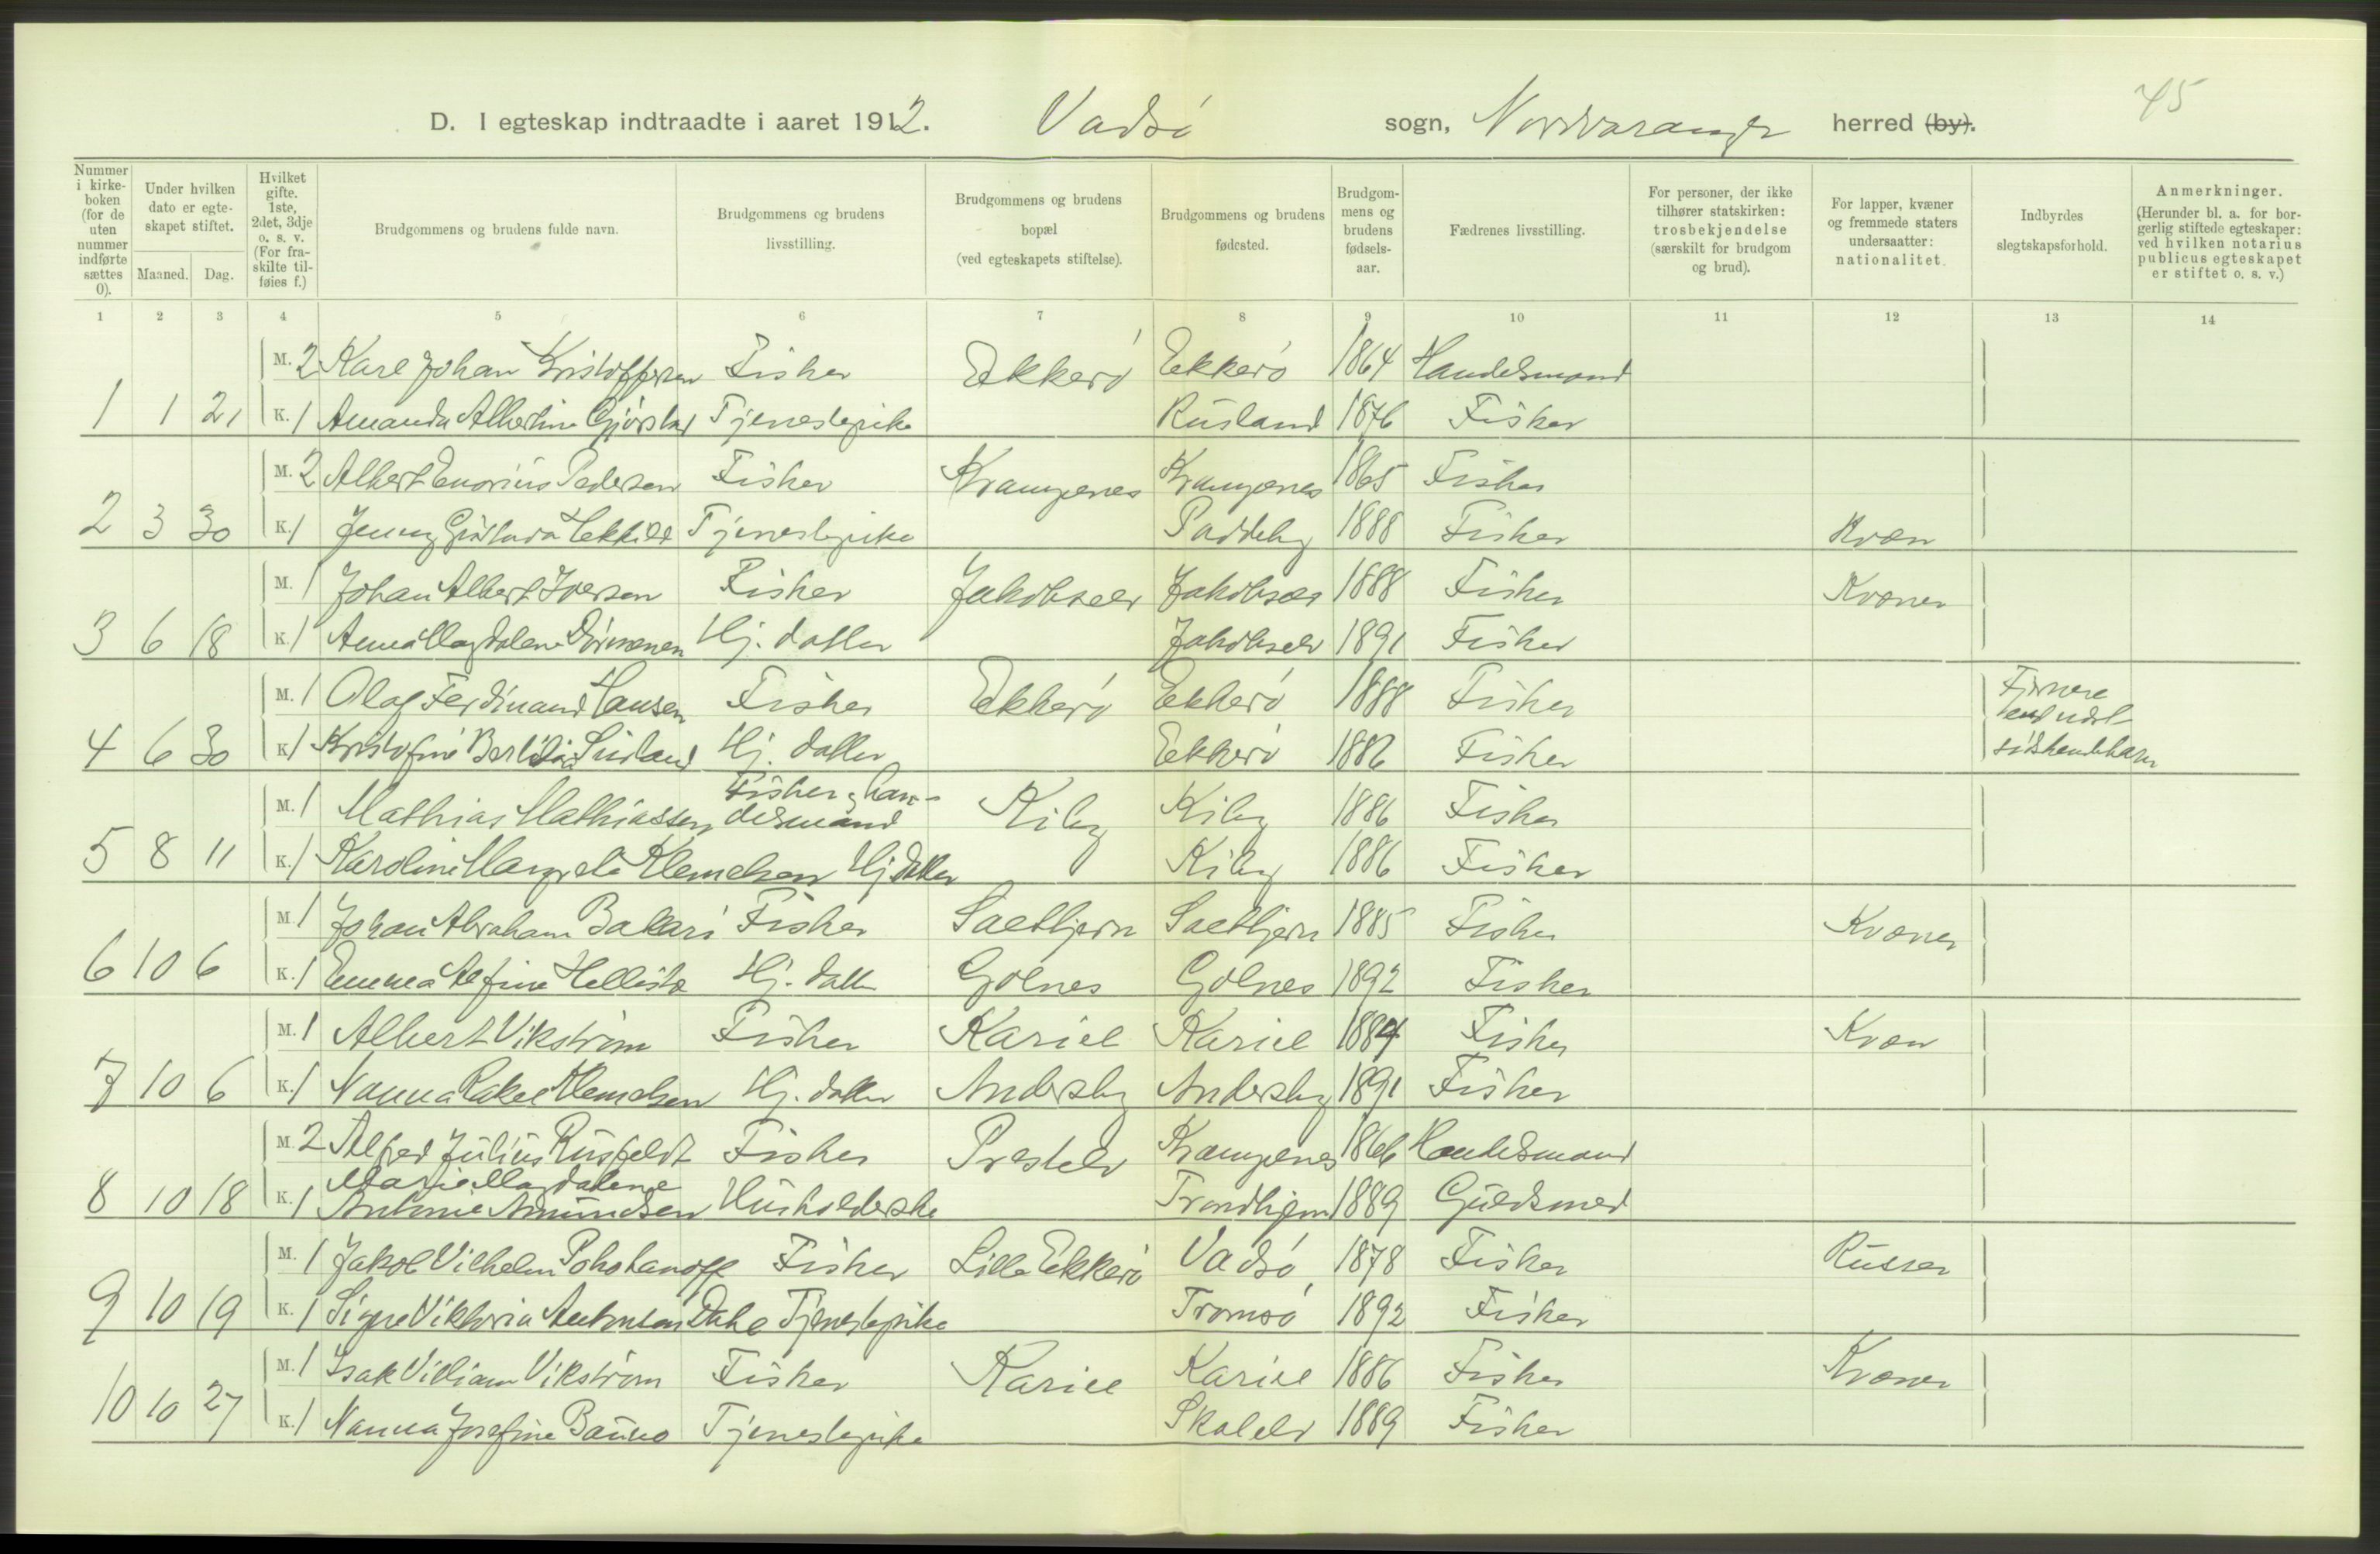 45
D. I egteskap indtraadte i aaret 1912. Vadsö sogn, Nordvaranger herred (by).
Nummer i kirke-boken (for de uten nummer indførte sættes 0).
Under hvilken dato er egte-skapet stiftet.
Maaned. Dag.
Hvilket gifte. 1ste, 2det, 3dje o. s. v. (For fra-skilte til-føies f.)
Brudgommens og brudens fulde navn.
Brudgommens og brudens livsstilling.
Brudgommens og brudens bopæl (ved egteskapets stiftelse).
Brudgommens og brudens fødested.
Brudgom-mens og brudens fødsels-aar.
Fædrenes livsstilling.
For personer, der ikke tilhører statskirken: trosbekjendelse (særskilt for brudgom og brud).
For lapper, kvæner og fremmede staters undersaatter: nationalitet.
Indbyrdes slegtskapsforhold.
Anmerkninger. (Herunder bl. a. for bor-gerlig stiftede egteskaper: ved hvilken notarius publicus egteskapet er stiftet o. s. v.)
1 2 3 4 5 6 7 8 9 10 11 12 13 14
M. 2 Karl Johan Kristoffersen Fisker Ekkerö Ekkerö 1864 Handelsmand
1 1 21 K. 1 Amanda Albertine Tjenestepike Rusland 1876 Fisker
M. 2 Albert Pedersen Fisker Krampenes Krampenes 1865 Fisker
2 3 30 K. 1 Jenny Tjenestepike Paddeby 1888 Fisker Kvæn
M. 1 Johan Albert Iversen Fisker Jakobselv Jakobselv 1888 Fisker Kvæner
3 6 18 K. 1 Anna Magdalene Hj. datter Jakobselv 1891 Fisker
M. 1 Olaf Ferdinand Hansen Fisker Ekkerö Ekkerö 1888 Fisker Fjernere end
4 6 30 K. 1 Hj. datter Ekkerö 1886 Fisker søskendebarn
M. 1 Mathias Mathiassen Fisker, han-delsmand Kiby Kiby 1886 Fisker
5 8 11 K. 1 Karoline Margrete Klemetsen Hj datter Kiby 1886 Fisker
M. 1 Johan Abraham Bakari Fisker Saltbjern Saltbjern 1885 Fisker Kvæner
6 10 6 K. 1 Emma Alfine Hj. datter Golnes Golnes 1892 Fisker
M. 1 Albert Vikström Fisker Kariel Kariel 1884 Fisker Kvæn
7 10 6 K. 1 Nanna Rakel Klemetsen Hj. datter Andersby Andersby 1891 Fisker
M. 2 Alfred Julius Rusfeldt Fisker Prestelv Krampenes 1866 Handelsmand
8 10 18 K. 1 Marie Magdalene Antonie Amundsen Husholderske Trondhjem 1889 Guldsmed
M. 1 Jakob Vilhelm Pohohanoff Fisker Lille Ekkerö Vadsö 1878 Fisker Russer
9 10 19 K. 1 Signe Viktoria Antonsen Dahl Tjenestepike Tromsö 1892 Fisker
M. 1 Isak Villiam Vikström Fisker Kariel Kariel 1886 Fisker Kvæner
10 10 27 K. 1 Nanna Josefine Bauno Tjenestepike Skalelv 1889 Fisker